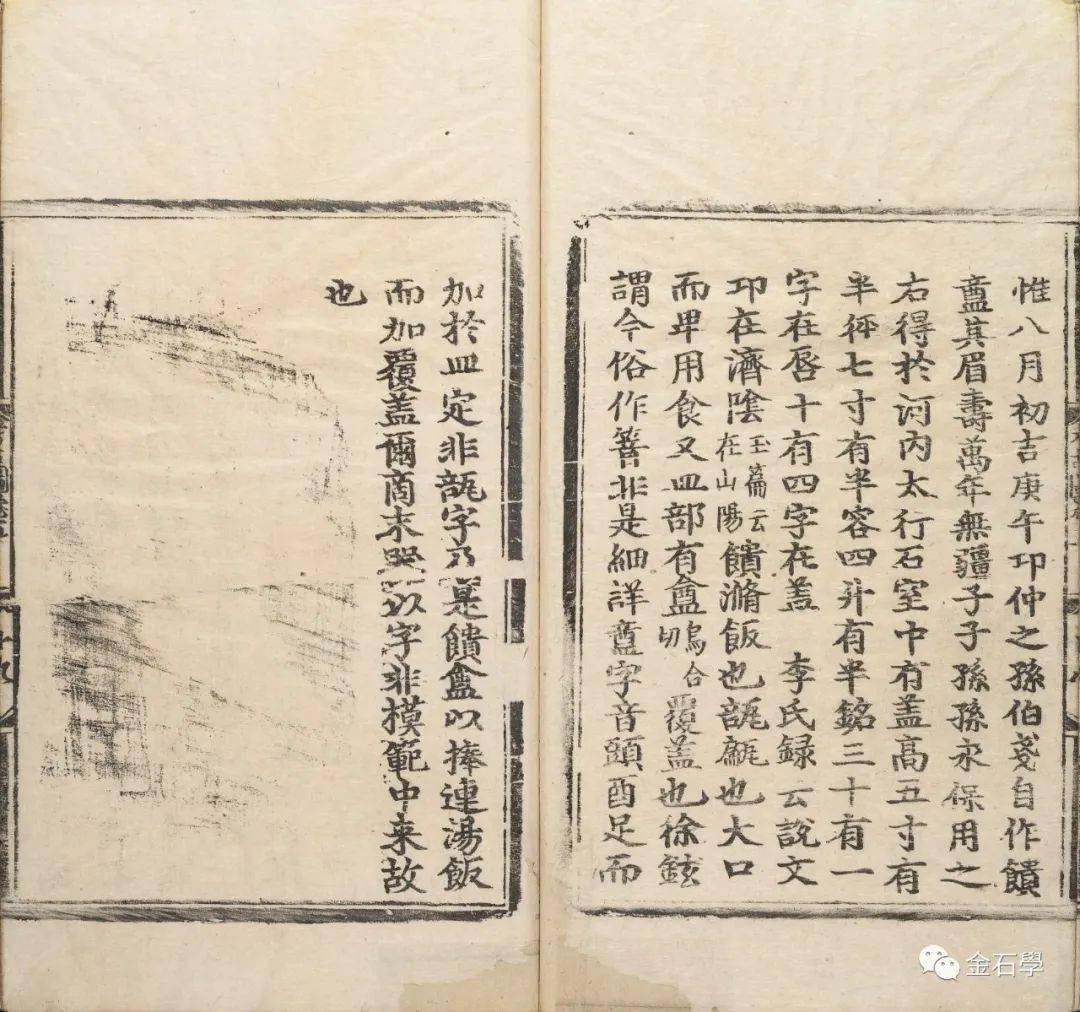 惟八月初吉庚午邛仲之孫伯戔自作饙
盦其眉壽萬年無疆子子孫孫永保用之
右得於河内太行石室中有盖高五寸有
半徑七寸有半容四升有半銘三十有一
字在唇十有四字在盖 李氏録云說文
邛在濟陰玉篇云在山陽饙滫飯也瓿甂也大口
而卑用食又皿部有盦烏合切覆盖也徐鉉
謂今俗作罯非是細詳盦字音頭酉足而
加於皿定非瓿字乃是饙盦以捧連湯飯
而加覆盖爾商末以字非模範中来故
也
金石學